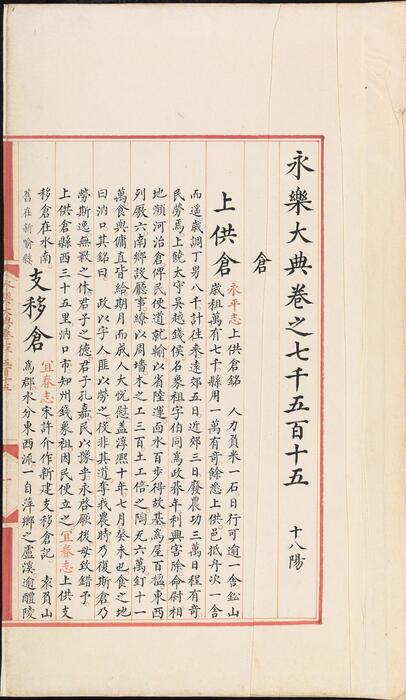 永樂大典卷之七千五百十五　十八陽
倉
上供倉 永平志上供倉銘　人力負米一石日行可逾一舍鉛山
歲租萬有七千縣用一萬有奇餘悉上供邑抵舟次一舍
而遥歲調丁男八千計往来遠郊五日近郊三日發農功三萬日程有奇
民勞焉上饒太守吴越錢侯名象祖字伯同爲政朞年利興害除命尉相
地瀕河治倉俾民便道就輸以省陸運面水百步得故基爲屋百楹東西
列厫六南鄉設廳事繚以周墻木之工三百土工倍之陶瓦六萬釘十一
萬食與傭直皆給期月而成人大悅慰盖淳熙十年七月癸未也食之地
曰汭口其銘曰　政以字人匪以勞之後非其道奪我農時乃復斯倉乃
勞斯逸無斁之休君子之德君子孔嘉民以豫乎永啓厥後毋敢錯予
上供倉縣西三十五里汭口市知州錢象祖因民便立之宜春志上供支
移倉在水南
舊在新喻縣
支移倉 宜春志宋許介作新建支移倉記　袁負山
爲郡水分東西派一自萍鄉之盧溪逾醴陵